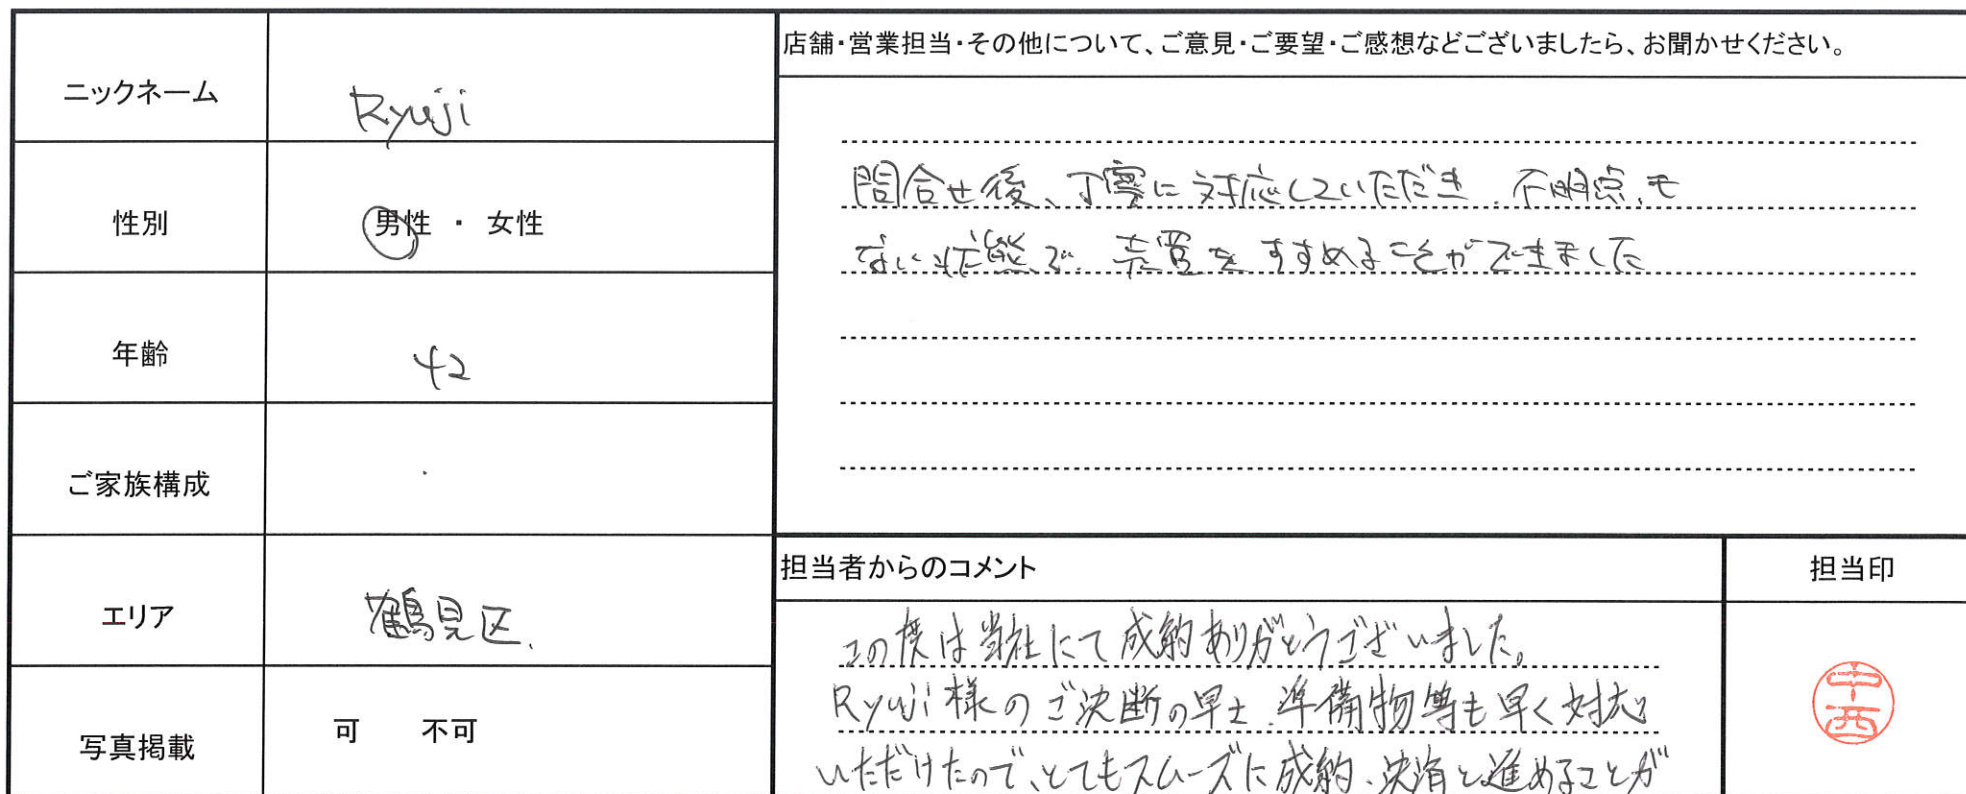 ニックネーム
Ryuji
性別
男性 ・ 女性
年齢
42
ご家族構成
エリア
鶴見区
写真掲載
可 不可
店舗・営業担当・その他について、ご意見・ご要望・ご感想などございましたら、お聞かせください。
問合せ後、丁寧に対応していただき、不明点も
ない状態で、売買をすすめることができました
担当者からのコメント
この度は当社にて成約ありがとうございました。
Ryuji様のご決断の早さ、準備物等も早く対応
いただけたので、とてもスムーズに成約、決済と進めることが
担当印
中西